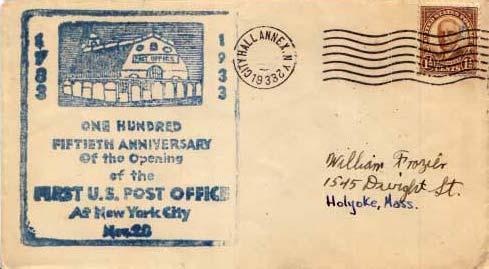 1783
1933
POST OFFICE
ONE HUNDRED
FIFTIETH ANNIVERSARY
Of the Opening
of the
FIRST U.S. POST OFFICE
At New York City
Nov. 28
CITY HALL ANNEX, N.Y.
1933
William Frozier
1545 Dwight St.
Holyoke, Mass.